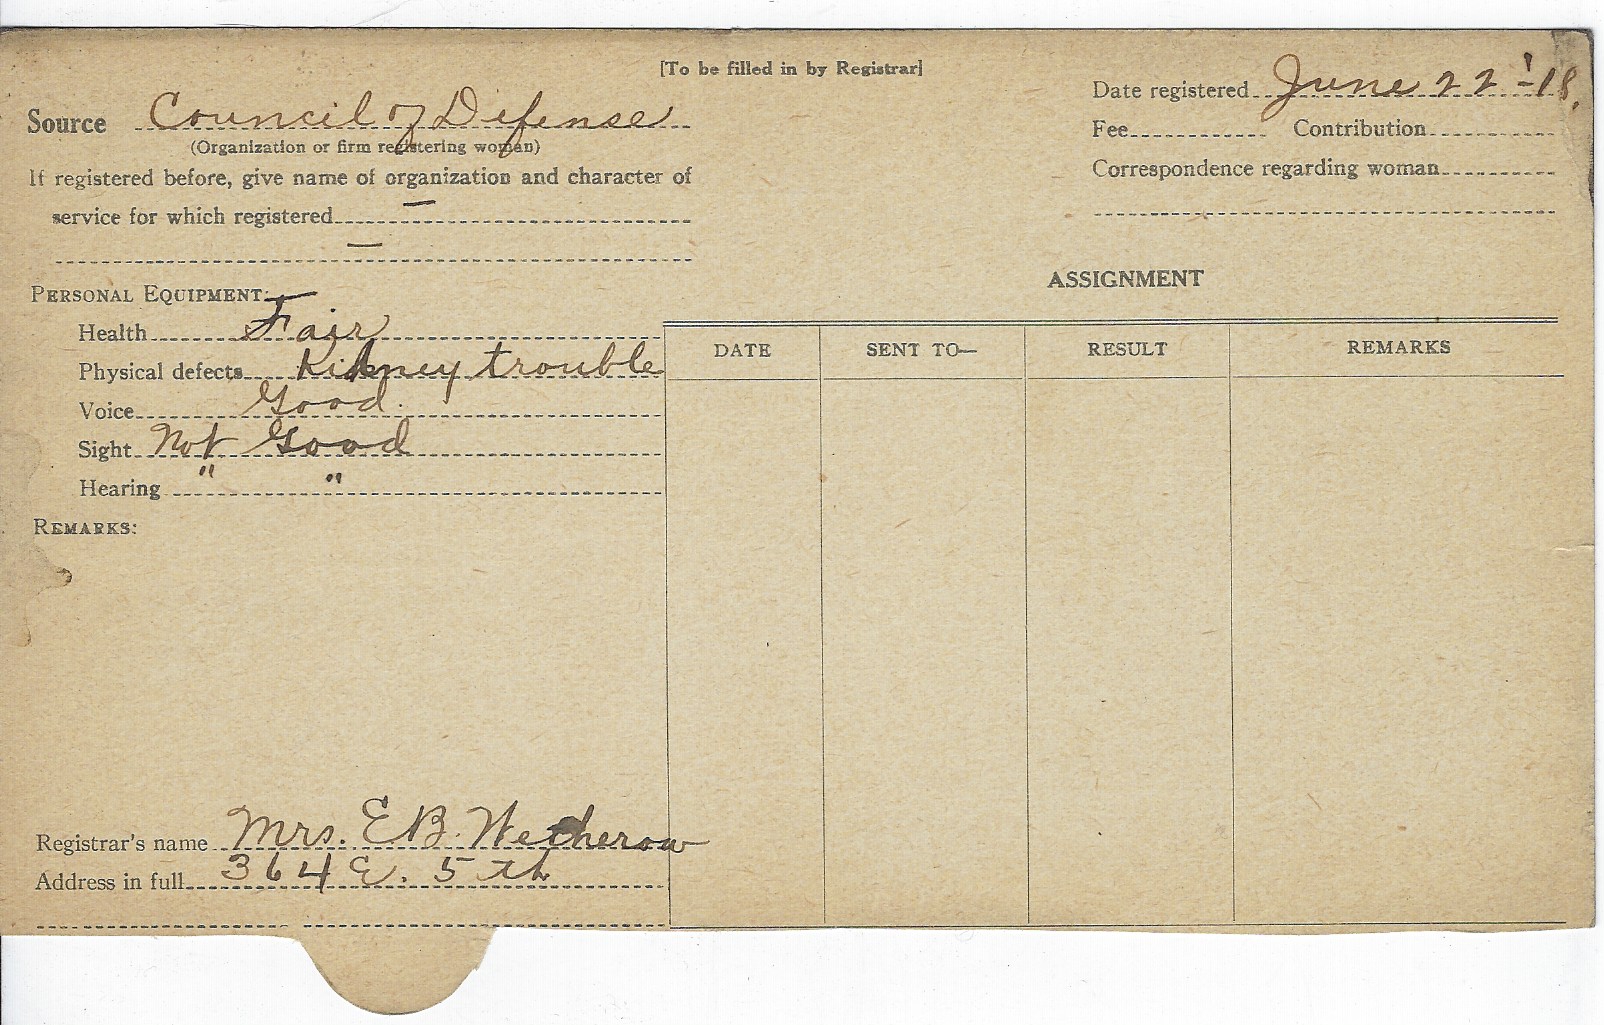 [To be filled in by Registrar]
Source Council of Defense
(Organization or firm registering woman)
If registered before, give name of organization and character of
service for which registered —
—
PERSONAL EQUIPMENT:
Health Fair
Physical defects Kidney trouble
Voice Good.
Sight Not Good
Hearing " "
REMARKS:
Registrar's name Mrs. E B. Wetherow
Address in full 364 E. 5 th
Date registered June 22'-18.
Fee Contribution
Correspondence regarding woman
ASSIGNMENT
DATE SENT TO— RESULT REMARKS